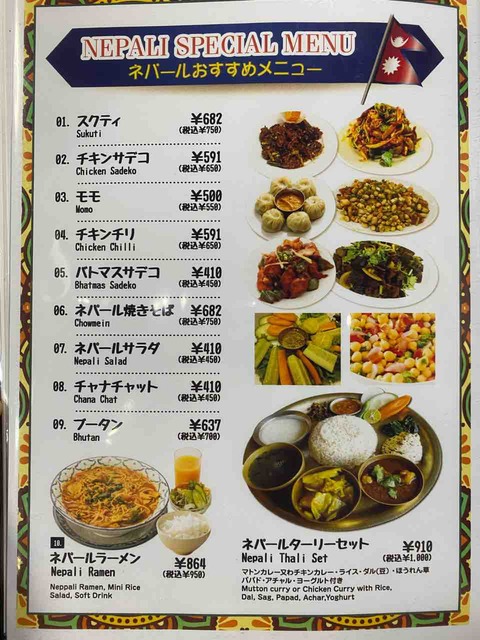 NEPALI SPECIAL MENU
ネパールおすすめメニュー
01. スクティ ¥682
Sukuti (税込¥750)
02. チキンサデコ ¥591
Chicken Sadeko (税込¥650)
03. モモ ¥500
Momo (税込¥550)
04. チキンチリ ¥591
Chicken Chilli (税込¥650)
05. バトマスサデコ ¥410
Bhatmas Sadeko (税込¥450)
06. ネパール焼きそば ¥682
Chowmein (税込¥750)
07. ネパールサラダ ¥410
Nepali Salad (税込¥450)
08. チャナチャット ¥410
Chana Chat (税込¥450)
09. ブータン ¥637
Bhutan (税込¥700)
10.
ネパールラーメン ¥864
Nepali Ramen (税込¥950)
Neppali Ramen, Mini Rice
Salad, Soft Drink
ネパールターリーセット ¥910
Nepali Thali Set (税込¥1,000)
マトンカレー又わチキンカレー・ライス・ダル(豆)・ほうれん草
パパド・アチャル・ヨーグルト付き
Mutton curry or Chicken Curry with Rice,
Dal, Sag, Papad, Achar,Yoghurt